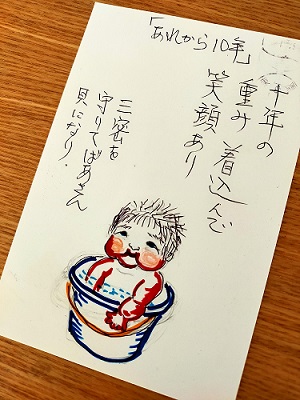 「あれから10年」
十年の
重み着込んで
笑顔あり
三密を
守りてばあさん
貝になり.